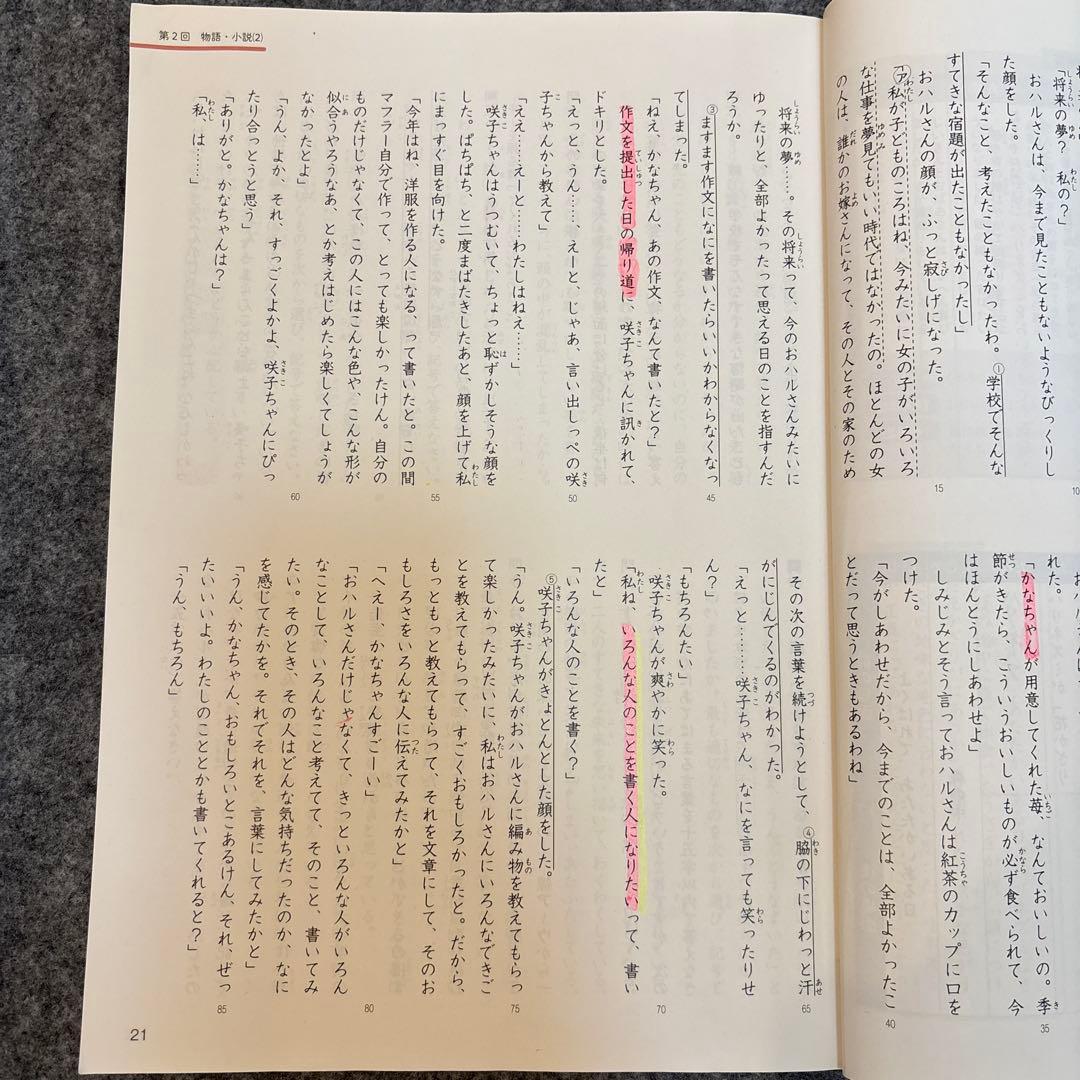 「将来の夢？　私の？」
おハルさんは、今まで見たこともないようなびっくりし
た顔をした。
「そんなこと、考えたこともなかったわ。①学校でそんな
すてきな宿題が出たこともなかったし」
おハルさんの顔が、ふっと寂しげになった。
「㋐私が子どものころはね、今みたいに女の子がいろいろ
な仕事を夢見てもいい時代ではなかったの。ほとんどの女
の人は、誰かのお嫁さんになって、その人とその家のため
10
15
れた。
「かなちゃんが用意してくれた苺、なんておいしいの。季
節がきたら、こういうおいしいものが必ず食べられて、今
はほんとうにしあわせよ」
しみじみとそう言っておハルさんは紅茶のカップに口を
つけた。
「今がしあわせだから、今までのことは、全部よかったこ
とだって思うときもあるわね」
35
40
第２回　物語・小説⑵
将来の夢……。その将来って、今のおハルさんみたいに
ゆったりと、全部よかったって思える日のことを指すんだ
ろうか。
③ますます作文になにを書いたらいいかわからなくなっ
てしまった。
「ねえ、かなちゃん、あの作文、なんて書いたと？」
作文を提出した日の帰り道に、咲子ちゃんに訊かれて、
ドキリとした。
「えっと、うん……、えーと、じゃあ、言い出しっぺの咲
子ちゃんから教えて」
「ええ……えーと……わたしはねえ……」
咲子ちゃんはうつむいて、ちょっと恥ずかしそうな顔を
した。ぱちぱち、と二度まばたきしたあと、顔を上げて私
にまっすぐ目を向けた。
「今年はね、洋服を作る人になる、って書いたと。この間
マフラー自分で作って、とっても楽しかったけん。自分の
ものだけじゃなくて、この人にはこんな色や、こんな形が
似合うやろうなあ、とか考えはじめたら楽しくてしょうが
なかったとよ」
「うん、よか、それ、すっごくよかよ、咲子ちゃんにぴっ
たり合っとうと思う」
「ありがと。かなちゃんは？」
「私、は……」
45
50
55
60
その次の言葉を続けようとして、④脇の下にじわっと汗
がにじんでくるのがわかった。
「えっと………咲子ちゃん、なにを言っても笑ったりせ
ん？」
「もちろんたい」
咲子ちゃんが爽やかに笑った。
「私ね、いろんな人のことを書く人になりたいって、書い
たと」
「いろんな人のことを書く？」
⑤咲子ちゃんがきょとんとした顔をした。
「うん。咲子ちゃんがおハルさんに編み物を教えてもらっ
て楽しかったみたいに、私はおハルさんにいろんなできご
とを教えてもらって、すごくおもしろかったと。だから、
もっともっと教えてもらって、それを文章にして、そのお
もしろさをいろんな人に伝えてみたかと」
「へえー、かなちゃんすごーい」
「おハルさんだけじゃなくて、きっといろんな人がいろん
なことして、いろんなこと考えてて、そのこと、書いてみ
たい。そのとき、その人はどんな気持ちだったのか、なに
を感じてたかを。それでそれを、言葉にしてみたかと」
「うん、かなちゃん、おもしろいとこあるけん、それ、ぜっ
たいいいよ。わたしのこととかも書いてくれると？」
「うん、もちろん」
65
70
75
80
85
21